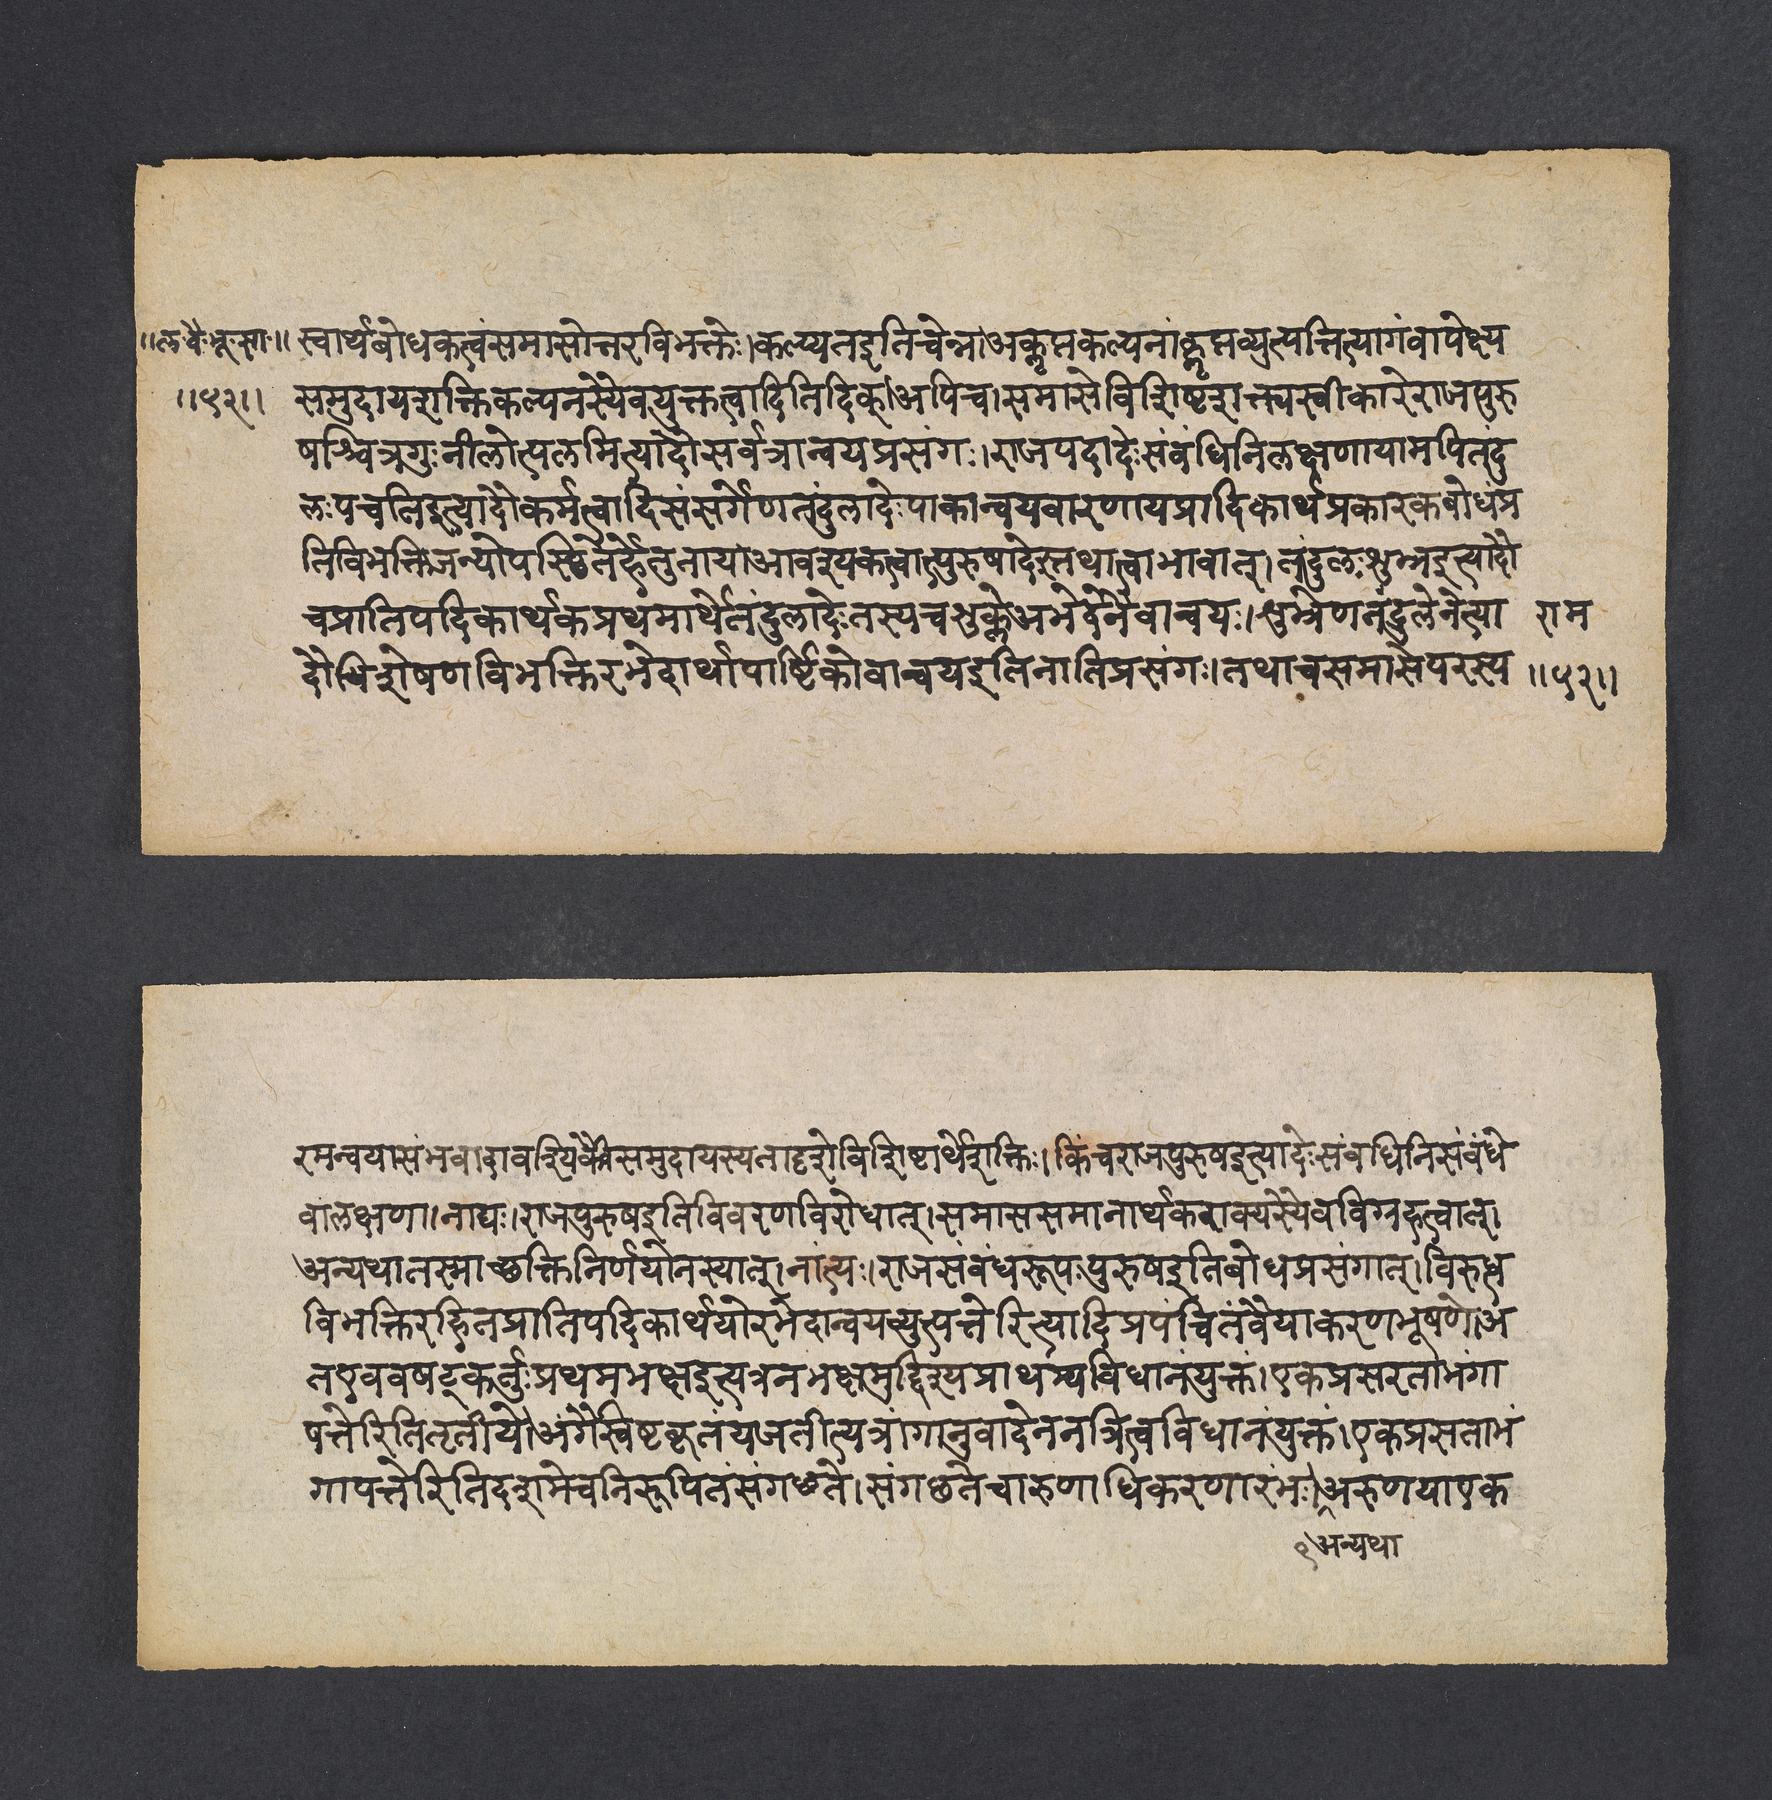 ॥ल॰वै॰भू॰सा॰॥ स्वार्थबोधकत्वंसमासोत्तरविभक्तेः।कल्प्यतइतिचेन्न।अकॢप्तकल्पनांकॢप्तव्युत्पत्तित्यागंवापेक्ष्य
॥५२॥ समुदायशक्तिकल्पनस्यैवत्युक्तत्वादितिदिक्।अपिच।समासेविशिष्टशक्त्यस्वीकारेराजपुरु
षश्चित्रगुःनीलोत्पलमित्यादौसर्वत्रान्वयप्रसंगः।राजपदादेःसंबंधिनिलक्षणायामपितंदु
लःपचतिइत्यादौकर्मत्वादिसंसर्गेणतंदुलादेःपाकान्वयवारणायप्रादिकार्थप्रकारकबोधंप्र
तिविभक्तिजन्योपस्थितेर्हेतुतायाआवश्यकत्वात्पुरुषादेस्तथात्वाभावात्।तंदुलःशुभ्रइत्यादौ
चप्रातिपदिकार्थकप्रथमार्थेतंदुलादेःतस्यचशुक्लेअभेदेनैवान्वयः।शुभ्रेणतंदुलेनेत्या राम
दौविशेषणविभक्तिरभेदार्थापार्ष्टिकोवान्वयइतिनातिप्रसंगः।तथाचसमासेपरस्प ॥५२॥
रमन्वयासंभवादावश्यिकैवसमुदायस्यतादृशेविशिष्टार्थेशक्तिः।किंचराजपुरुषइत्यादेःसंबंधिनिसंबंधे
वालक्षणा।नाद्यः।राजपुरुषइतिविवरणविरोधात्।समाससमानार्थकवाक्यस्यैवविग्रहत्वात्।
अन्यथातस्माच्छक्तिनिर्णयोनस्यात्।नांत्यः।राजसंबंधरूपःपुरुषइतिबोधप्रसंगात्।विरुद्ध
विभक्तिरहितप्रातिपदिकार्थयोरभेदान्वयव्युत्पत्तेरित्यादिप्रपंचितंवैयाकरणभूषणे।अ
तएववषट्कर्तुःप्रथमभक्षइत्यत्रनभक्षमुद्दिश्यप्राथम्यविधानंयुक्तं।एकप्रसरताभंगा
पत्तेरितितृतीये।अंगैःस्विष्टकृतंयजतीत्यत्रांगानुवादेननत्रित्वविधानंयुक्तं।एकप्रसताभं
गापत्तेरितिदशमेचनिरूपितंसंगच्छते।संगछतेचारुणाधिकरणारंभः।अरुणयाएक
१अन्यथा